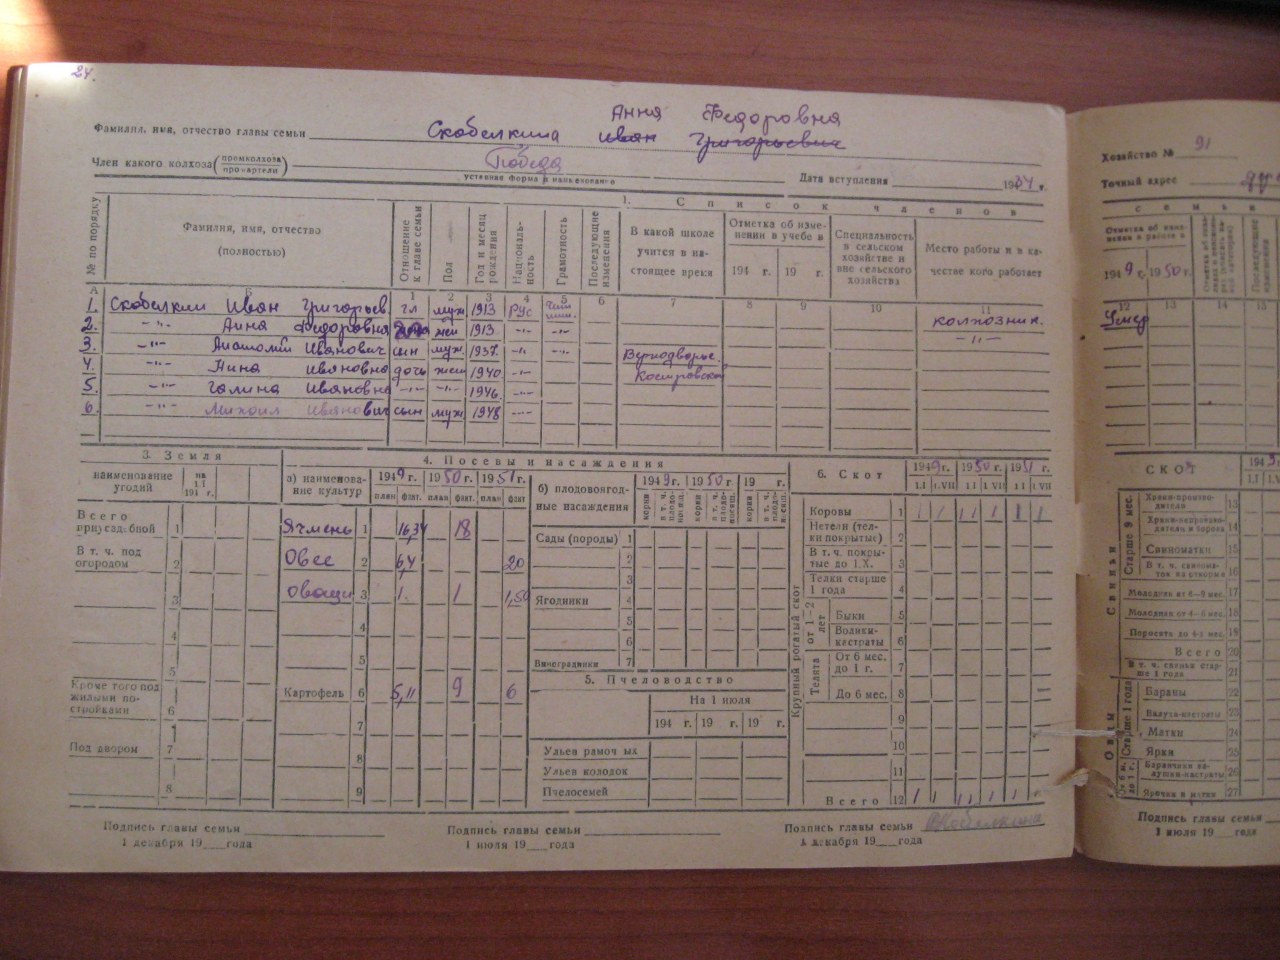 24.
Анна Федоровна
Фамилия, имя, отчество главы семьи Скобелкина Иван Григорьевич
Член какого колхоза (промколхоза / промартели) Победа
уставная форма и наименование
Дата вступления 1934 г.
1. Список членов
№ по порядку
Фамилия, имя, отчество (полностью)
Отношение к главе семьи
Пол
Год и месяц рождения
Националь-ность
Грамотность
Последующие изменения
В какой школе учится в на-стоящее время
Отметка об изме-нении в учебе в
194 г. 19 г.
Специальность в сельском хозяйстве и вне сельского хозяйства
Место работы и в ка-честве кого работает
А Б 1 2 3 4 5 6 7 8 9 10 11
1. Скобелкин Иван Григорьев. гл муж. 1913 Рус колхозник.
2. -"- Анна Федоровна жен 1913 -"- -"- -"-
3. -"- Анатолий Иванович сын муж. 1937. -"- -"-
4. -"- Нина Ивановна дочь жен 1940 -"-
5. -"- Галина Ивановна -"- -"- 1946. -"-
6. -"- Михаил Иванович сын муж. 1948 -"-
3. Земля
наименование угодий
на 1.I 194 г.
Всего приусадебной 1
В т. ч. под огородом 2
3
4
5
Кроме того под жилыми по-стройками 6
Под двором 7
8
4. Посевы и насаждения
а) наименова-ние культур
1949 г. 1950 г. 1951 г.
план факт. план факт. план факт
Ячмень 1 16,34 18
Овес 2 6,4 20
Овощи 3 1. 1 1,50
4
5
Картофель 6 5,11 9 6
7
8
9
б) плодовоягод-ные насаждения
1949 г. 1950 г. 19 г.
Сады (породы) 1
2
3
Ягодники 4
5
6
Виноградники 7
5. Пчеловодство
На 1 июля
194 г. 19 г. 19 г.
Ульев рамочных
Ульев колодок
Пчелосемей
6. Скот
1949 г. 1950 г. 1951 г.
1.I 1.VII 1.I 1.VII 1.I 1.VII
Крупный рогатый скот
Коровы 1 1 1 1 1 1 1
Нетели (тел-ки покрытые) 2
В т. ч. покры-тые до 1.X. 3
Телки старше 1 года 4
от 1-2 лет
Быки 5
Волики-кастраты 6
Телята
От 6 мес. до 1 г. 7
До 6 мес. 8
9
10
11
Всего 12 1 1 1 1 1 1
Подпись главы семьи
1 декабря 19 года
Подпись главы семьи
1 июля 19 года
Подпись главы семьи Скобелкина
1 декабря 19 года
Хозяйство № 91
Точный адрес
семьи
1949 г. 1950 г.
12 13 14 15
Умер
СКОТ
1.I 1.VII
Свиньи
Старше 9 мес.
13
14
Свиноматки 15
16
Молодняк от 4-9 мес. 17
18
Поросят до 4-х мес. 19
Всего 20
21
Овцы
Старше 1 года
Бараны 22
Валухи-кастраты 23
Матки 24
Ярки 25
26
Ярочки и матки 27
Подпись главы семьи
1 июля 19 года